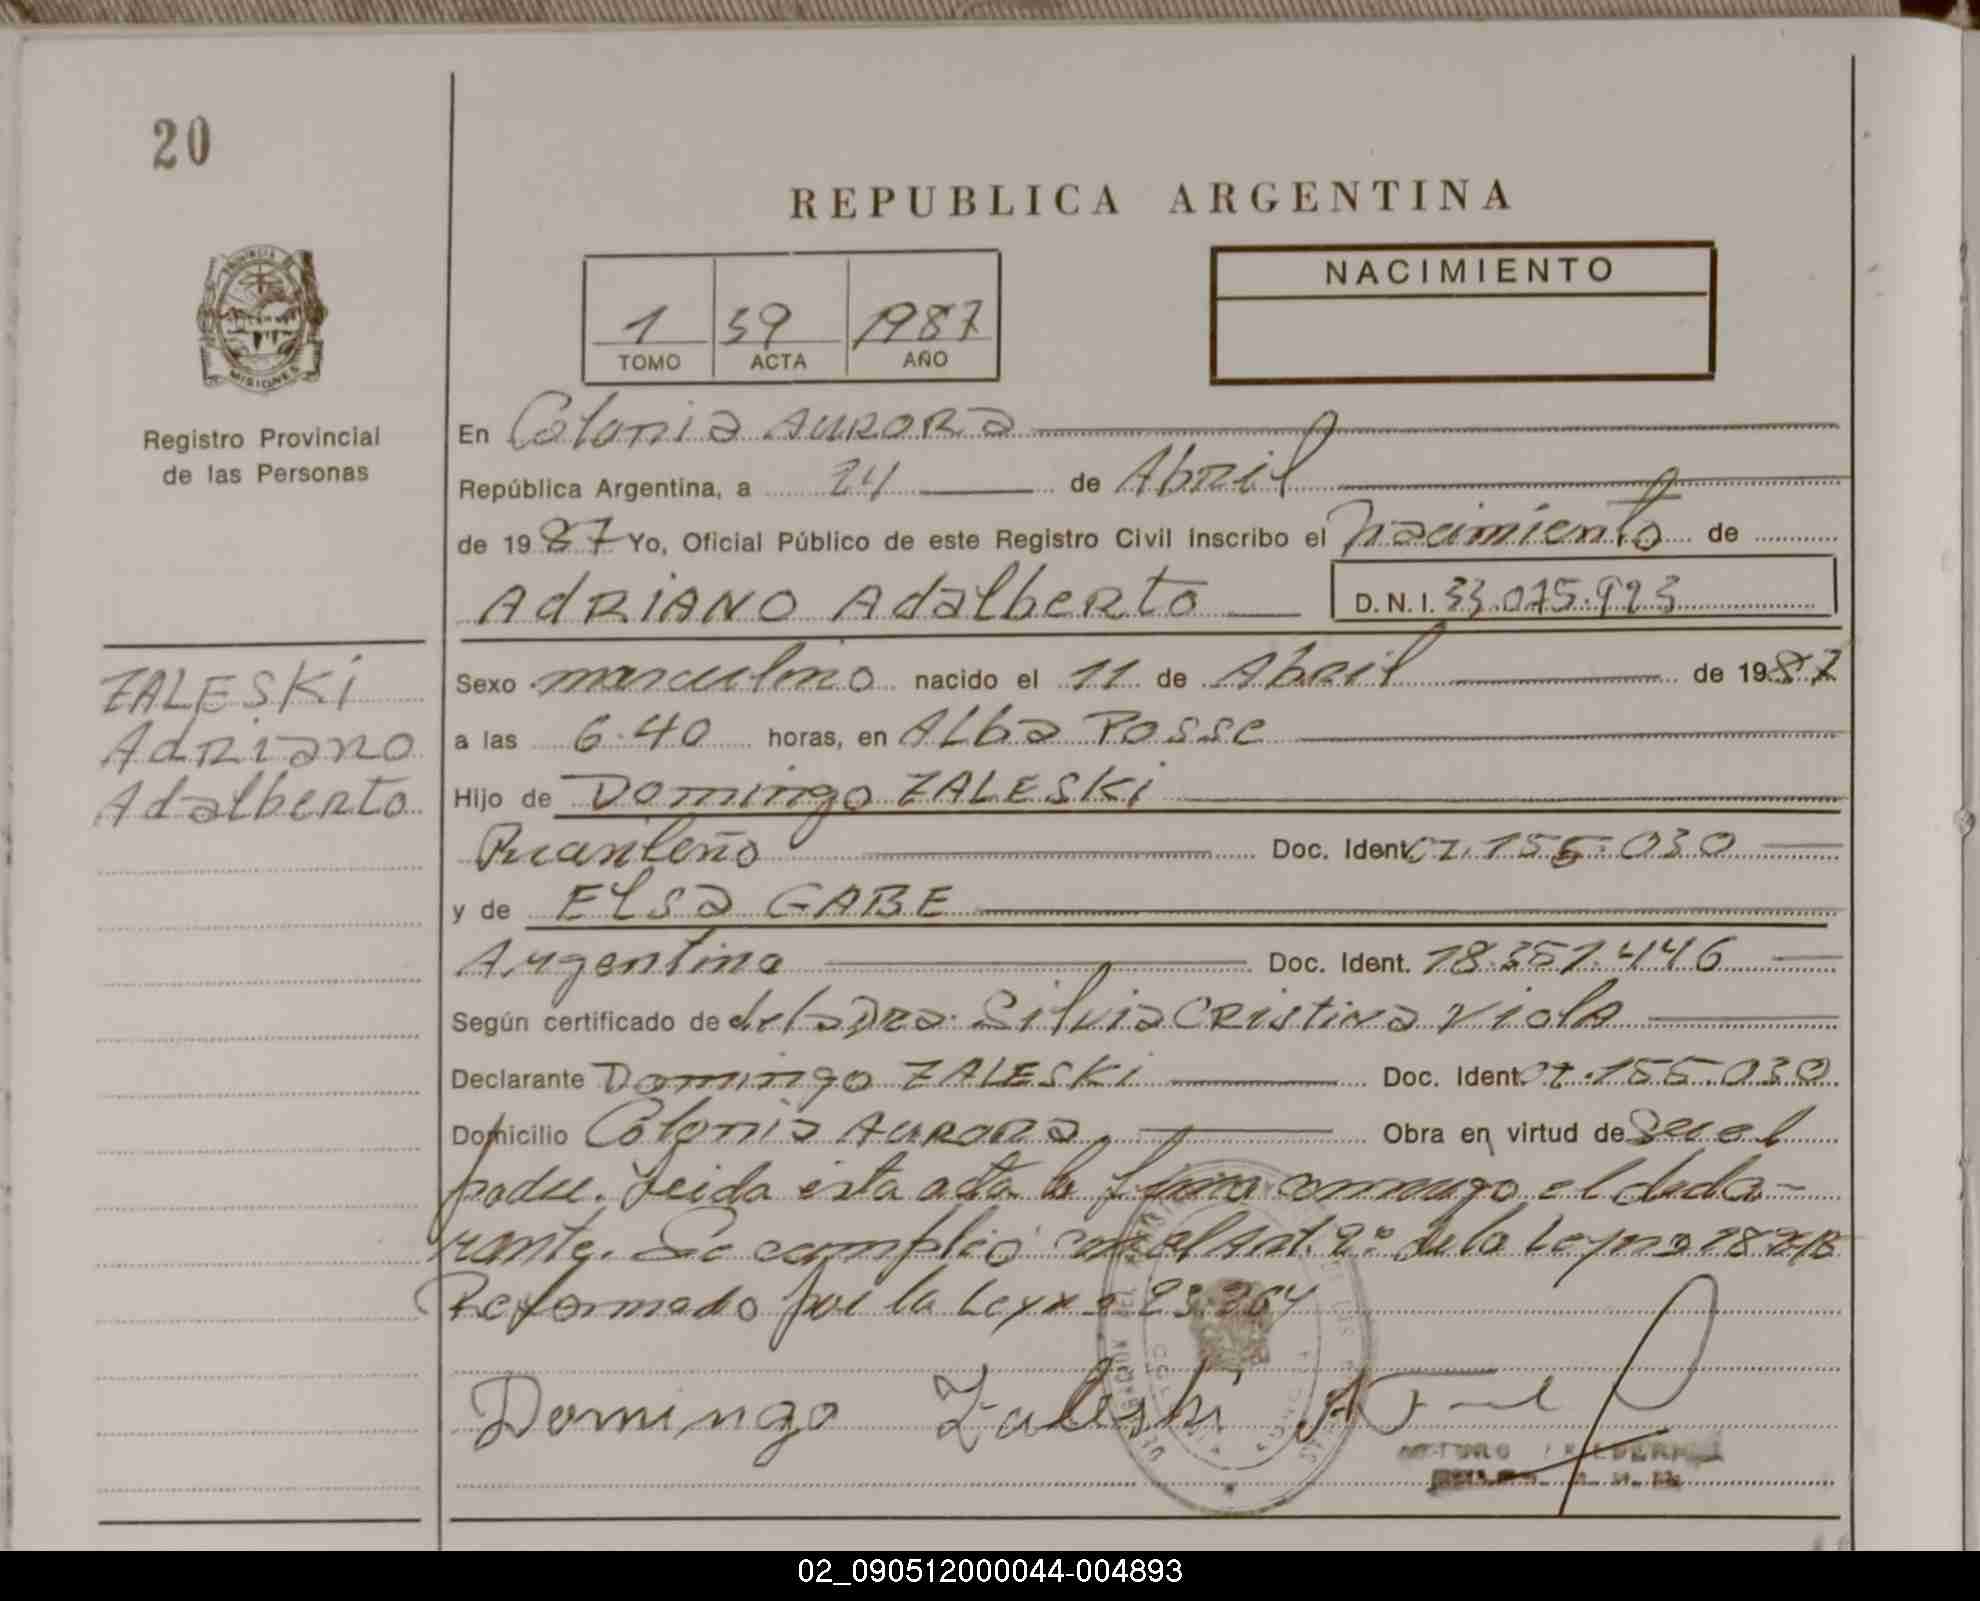 20
REPUBLICA ARGENTINA
PROVINCIA DE
MISIONES
Registro Provincial
de las Personas
NACIMIENTO
1 39 1987
TOMO ACTA AÑO
En Colonia AURORA
República Argentina, a 24 de Abril
de 1987 Yo, Oficial Público de este Registro Civil inscribo el nacimiento de
AdRiANO Adalberto D.N.I. 33.075.923
ZALESKi
Adriano
Adalberto
Sexo masculino nacido el 11 de Abril de 1987
a las 6.40 horas, en Alba Posse
Hijo de Domingo ZALESKi
Brasileño Doc. Ident. 155.030
y de Elsa GABE
Argentina Doc. Ident. 18.351.446
Según certificado de de la Dra. Silvia Cristina Viola
Declarante Domingo ZALESKi Doc. Ident. 155.030
Domicilio Colonia Aurora, Obra en virtud de Ser el
padre. Leida esta acta la firma conmigo el decla-
rante. Se cumplió con el Art. 2º de la Ley nº
Reformado por la Ley nº 23.264
Domingo Zaleski
02_090512000044-004893